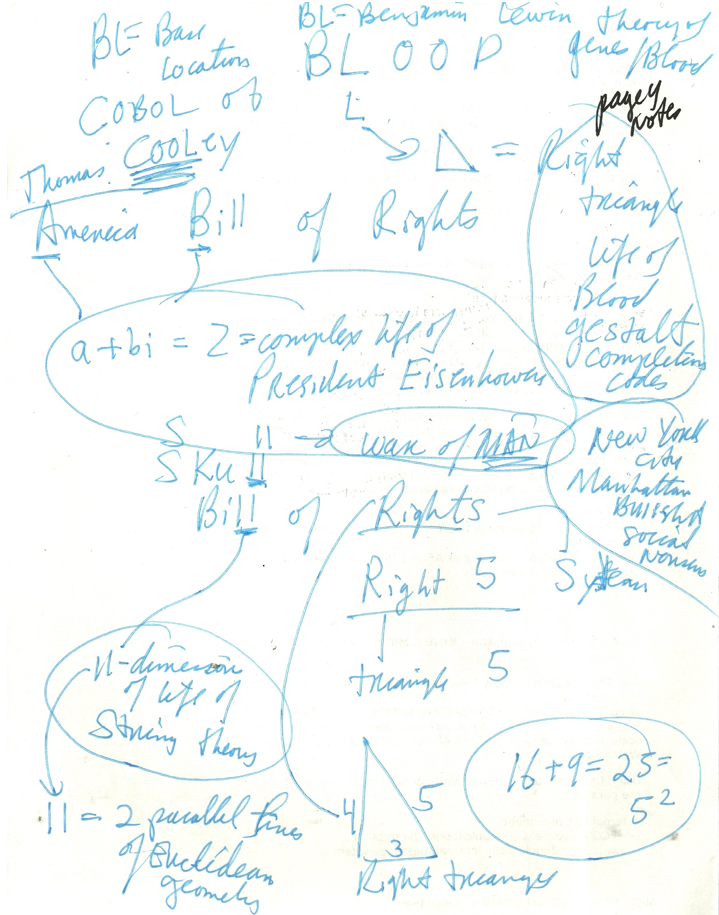 BL = Base
Location
BL = Benjamin Lewin theory of
genes / Blood
BLOOD
COBOL of
Thomas COOLEY
L
= Right
triangle
life of
Blood
gestalt
completion
codes
page 4
notes
America Bill of Rights
a + bi = Z = complex life of
President Eisenhower
S 11 → wax of MAN
SKull
Bill of Rights
New York
City
Manhattan
Bullshit
social
Right 5
System
triangle 5
11-dimension
of life of
String theory
11 = 2 parallel lines
of Euclidean
geometry
4 5
3
Right triangles
16 + 9 = 25 =
5²